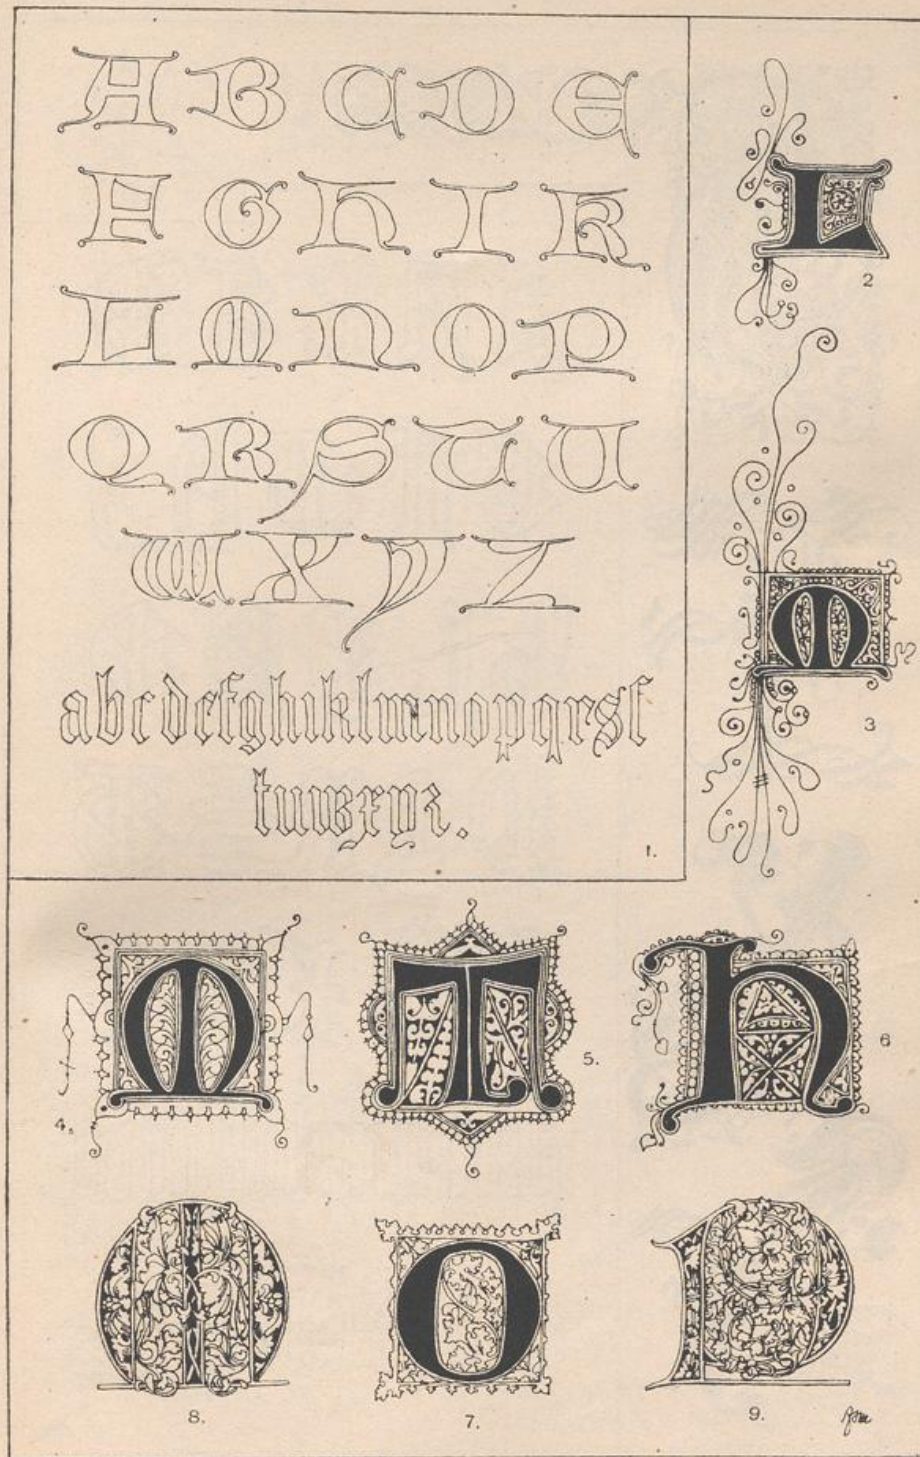 A B C D E
F G H I K
L M N O P
Q R S T U
W X Y Z
abcdefghiklmnopqrsſ
tuwxyz.
1.
L
2
M
3
M
4.
T
5.
H
6
M
8.
O
7.
P
9.